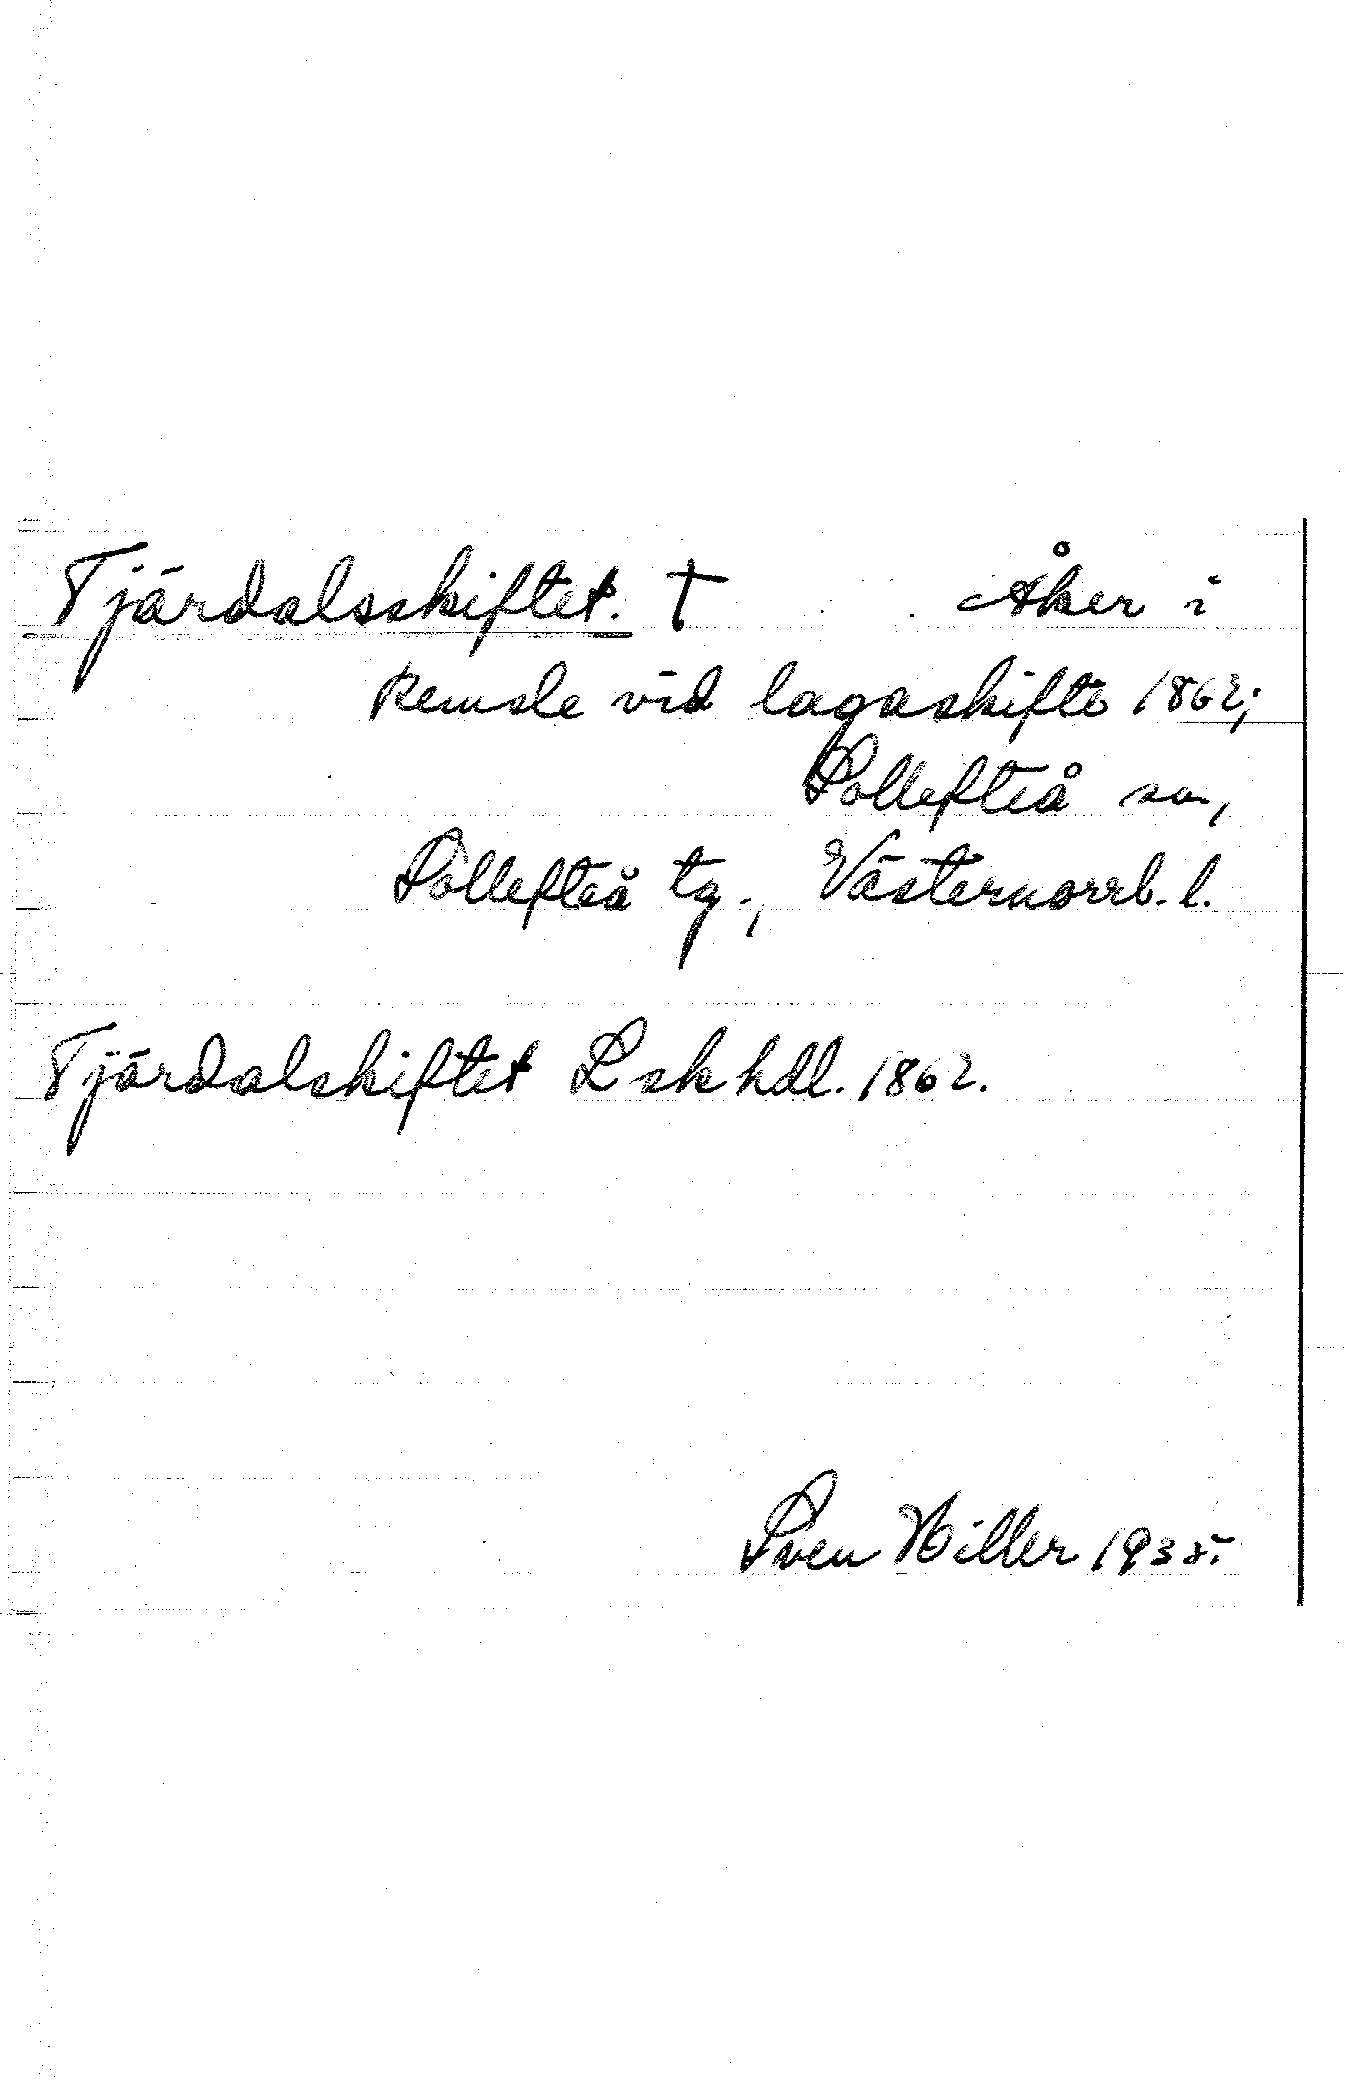 Tjärdalsskiftet. † Åker i
Remsle vid lagaskifte 1862;
Sollefteå sn,
Sollefteå tg., Västernorrl. l.
Tjärdalskiftet Lskhdl. 1862.
Sven Hiller 1935.